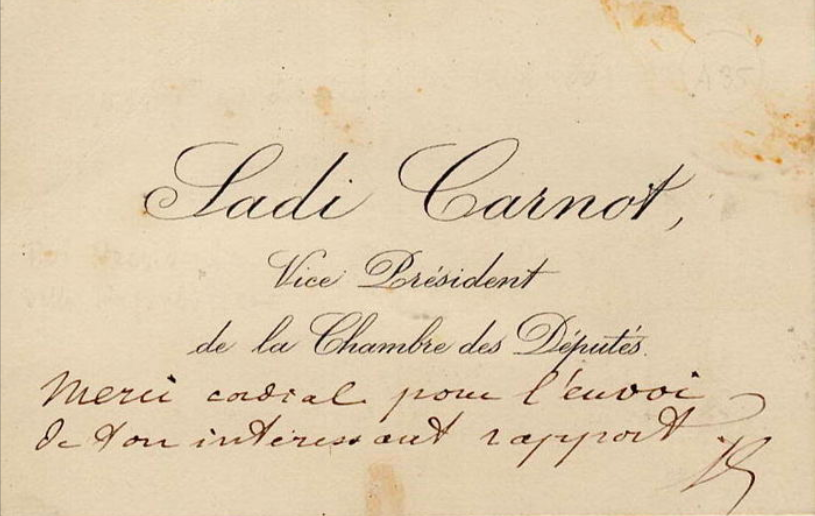 Sadi Carnot,
Vice Président
de la Chambre des Députés.
Merci cordial pour l'envoi
de ton intéressant rapport